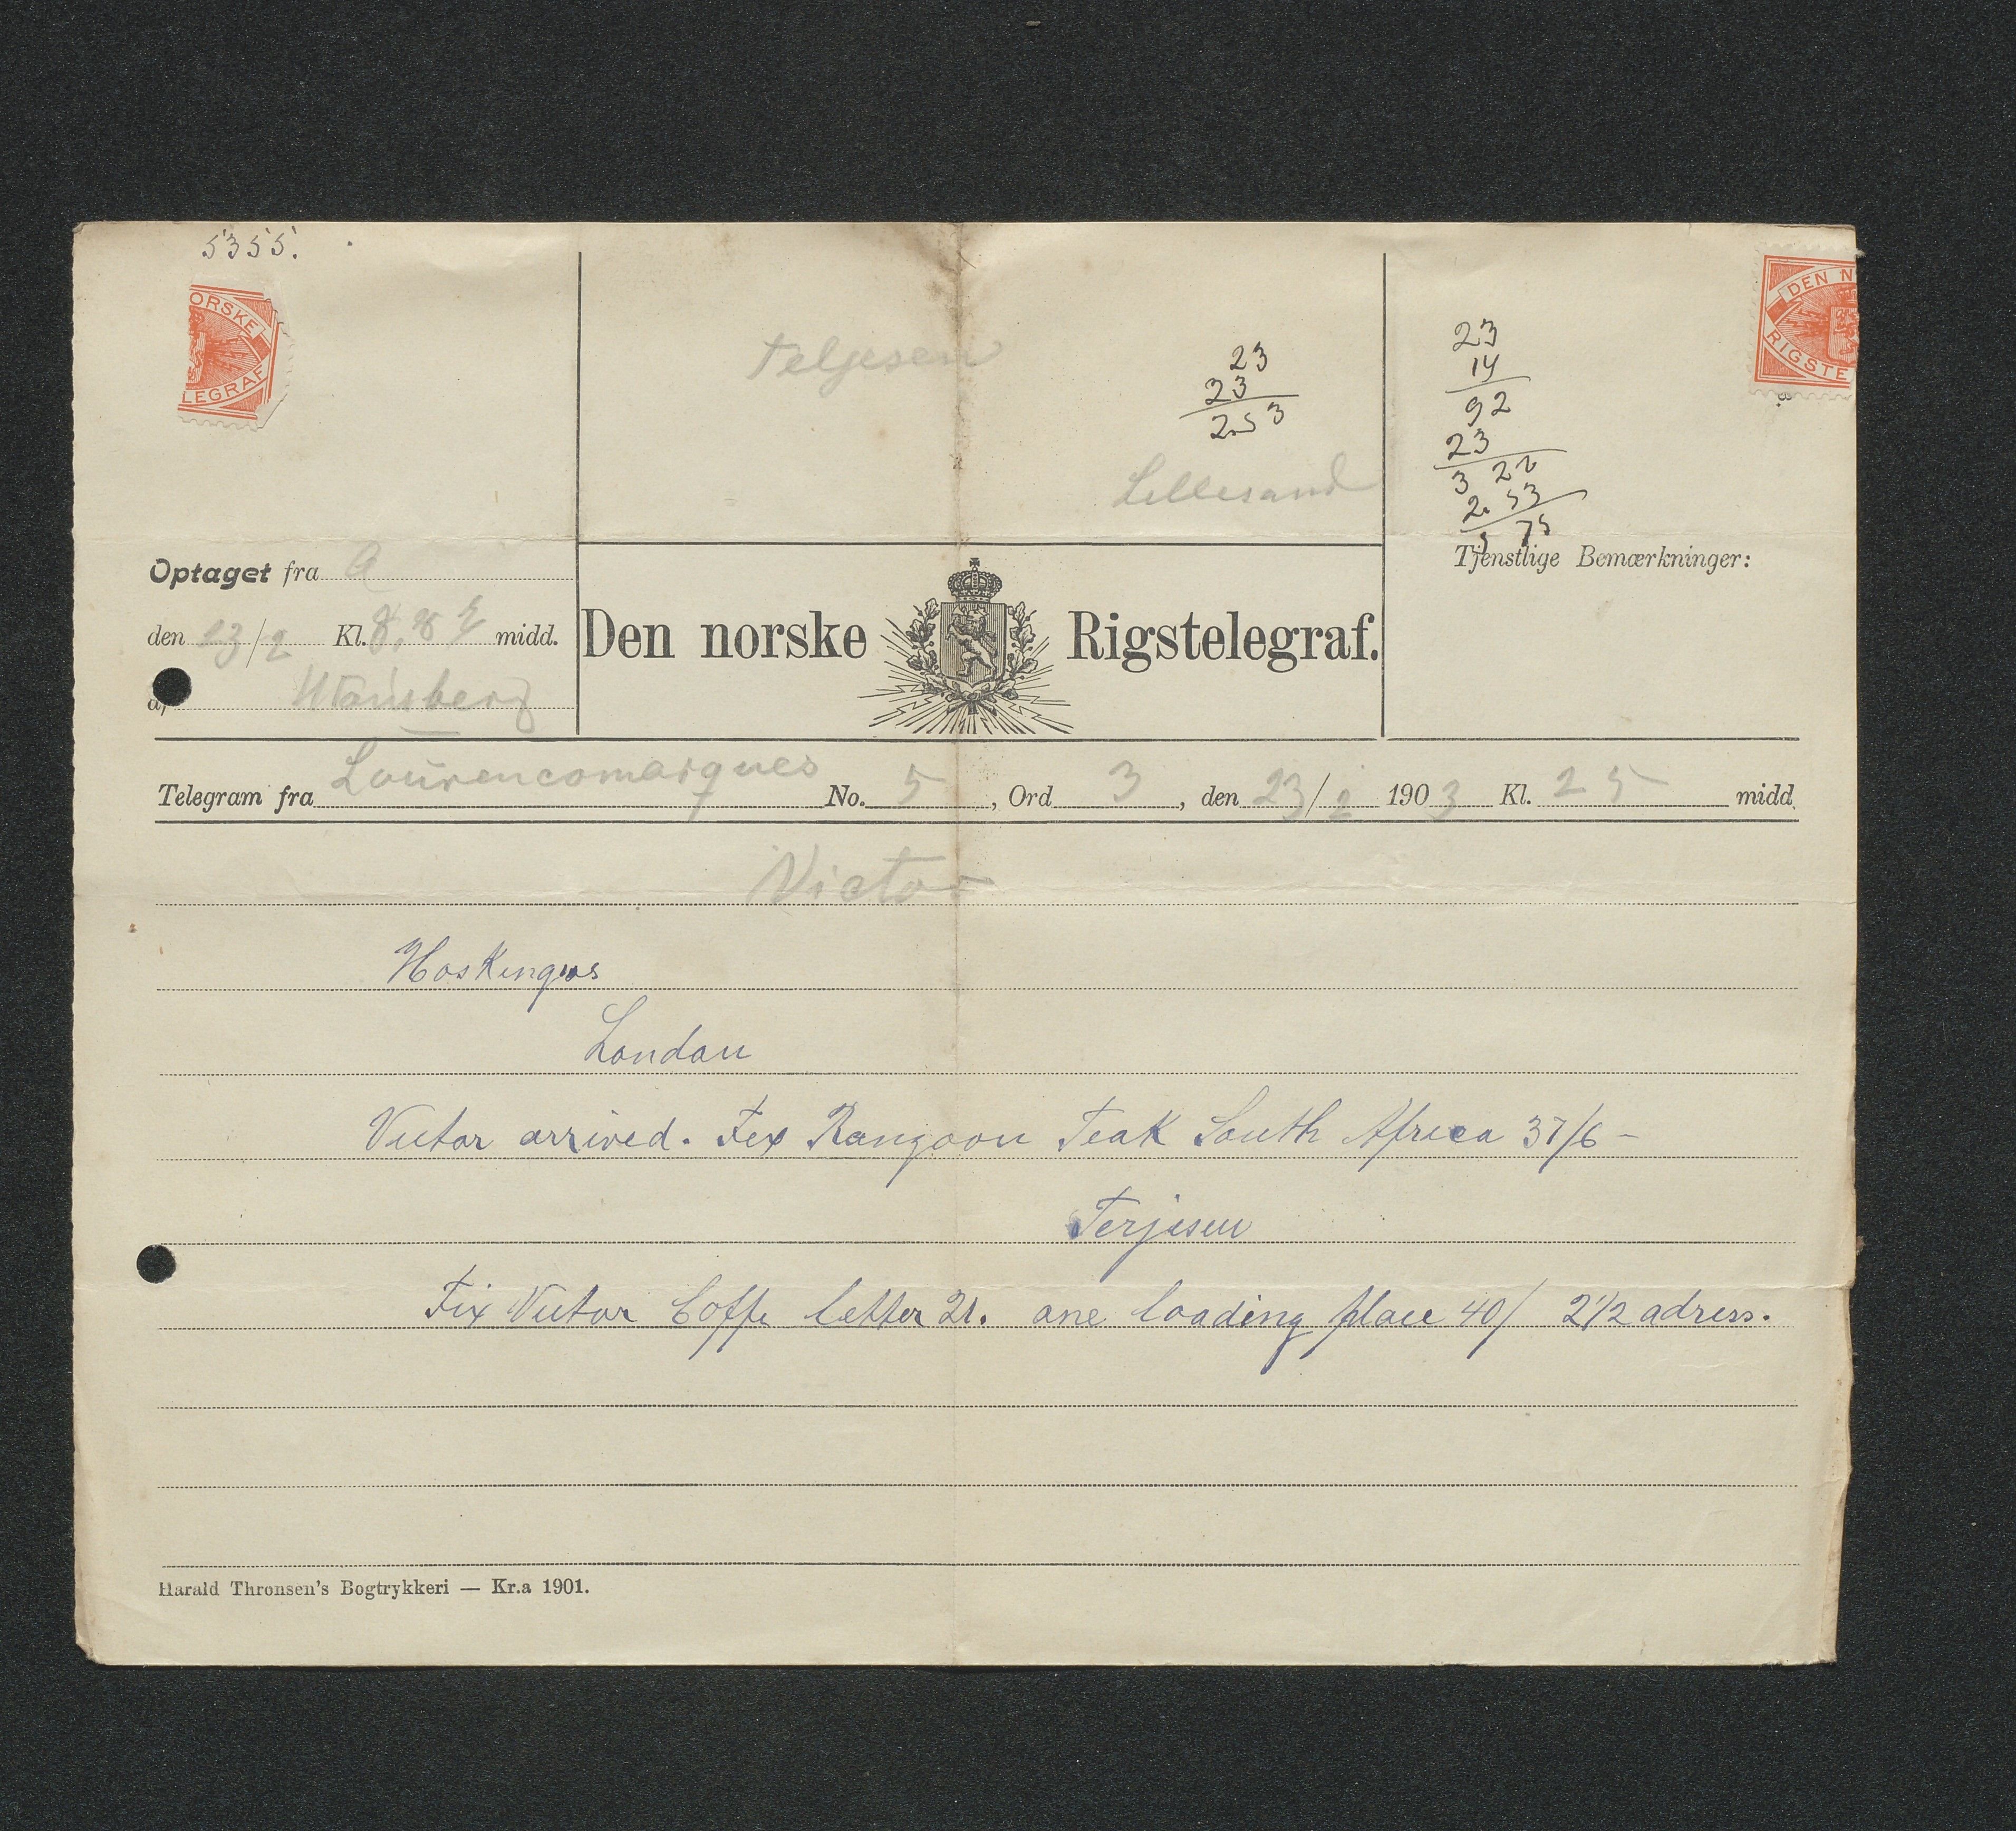 5355.
ORSKE
LEGRAF
DEN N
RIGSTE
Teljesen
Lillesand
23
23
2.53
23
14
92
23
3 22
2.53
5 75
Tjenstlige Bemærkninger:
Optaget fra A
den 23/2 Kl. 8, 8 E midd.
af
Den norske Rigstelegraf.
Telegram fra Lourencomarques No. 5, Ord 3, den 23/2 1903 Kl. 25 midd.
Victor
London
Victor arrived. Fix Rangoon Teak South Africa 37/6 -
Terjesen
Fix Victor Coffe letter 21. one loading place 40/ 2 1/2 adress.
Harald Thronsen's Bogtrykkeri — Kr.a 1901.